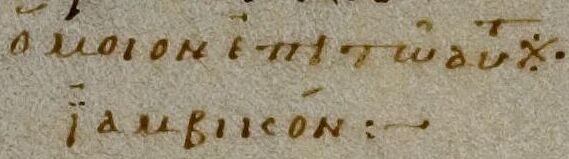 ὅμοιον ἐπὶ τῶ αυτ χ.
ἰαμβικόν :→